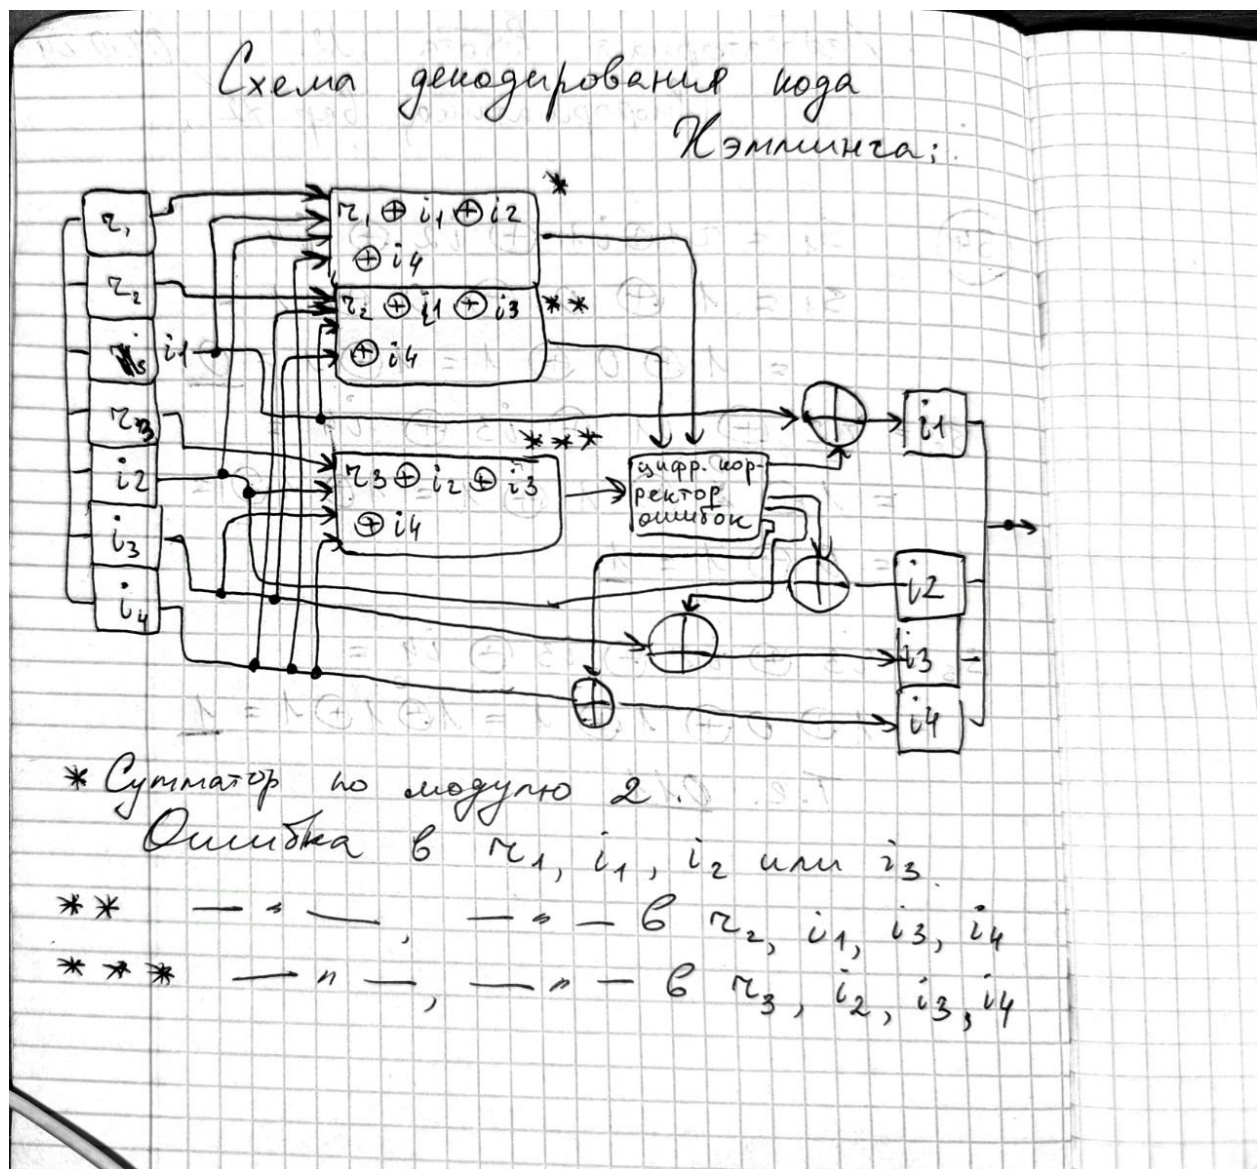 Схема декодирования кода
Хэмминга:
r₁
r₂
i1
r3
i2
i3
i4
r₁ ⊕ i1 ⊕ i2
⊕ i4
*
r₂ ⊕ i1 ⊕ i3
⊕ i4
**
r3 ⊕ i2 ⊕ i3
⊕ i4
***
цифр. кор-
ректор
ошибок
i1
i2
i3
i4
* Сумматор по модулю 2.
Ошибка в r₁, i₁, i₂ или i₃.
** — " —, — " — в r₂, i₁, i3, i4
*** — " —, — " — в r₃, i₂, i₃, i4